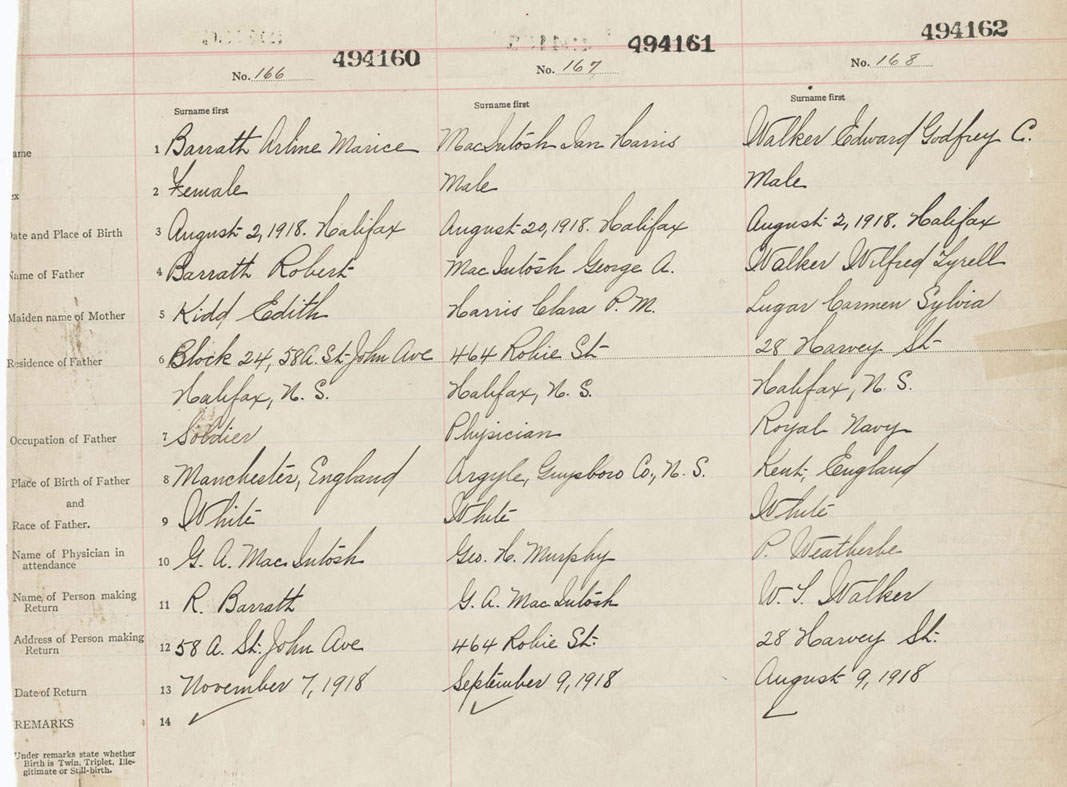 494160 494161 494162
No. 166 No. 167 No. 168
Surname first Surname first Surname first
ame 1 Barrath Arline Marice MacIntosh Ian Harris Walker Edward Godfrey C.
ex 2 Female Male Male
Date and Place of Birth 3 August 2, 1918. Halifax August 20, 1918. Halifax August 2, 1918. Halifax
Name of Father 4 Barrath Robert MacIntosh George A. Walker Wilfred Tyrell
Maiden name of Mother 5 Kidd Edith Harris Clara P. M. Lugar Carmen Sylvia
Residence of Father 6 Block 24, 58A. St. John Ave 464 Robie St. 28 Harvey St.
Halifax, N. S. Halifax, N. S. Halifax, N. S.
Occupation of Father 7 Soldier Physician Royal Navy
Place of Birth of Father 8 Manchester, England Argyle, Guysboro Co., N. S. Kent, England
and
Race of Father. 9 White White White
Name of Physician in attendance 10 G. A. MacIntosh Geo. H. Murphy P. Weatherbe
Name of Person making Return 11 R. Barrath G. A. MacIntosh W. T. Walker
Address of Person making Return 12 58 A. St. John Ave 464 Robie St. 28 Harvey St.
Date of Return 13 November 7, 1918 September 9, 1918 August 9, 1918
REMARKS 14
Under remarks state whether
Birth is Twin, Triplet, Ille-
gitimate or Still-birth.